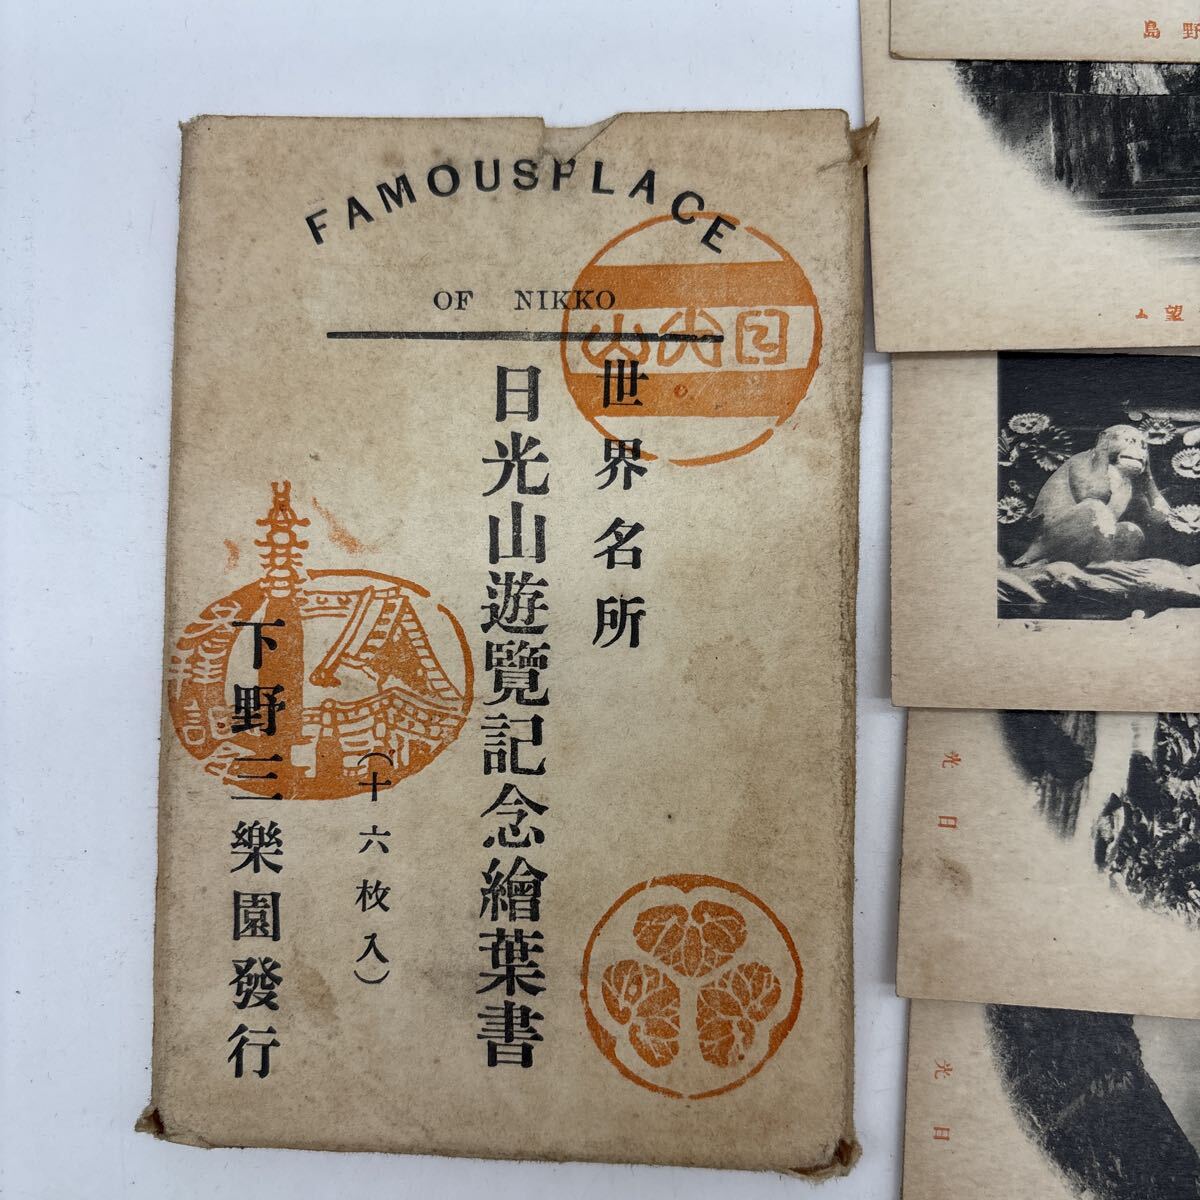 FAMOUSPLACE
OF NIKKO
世界名所
日光山遊覽記念繪葉書
(十六枚入)
下野三樂園發行
日光山
参拝記念
島野
望
光日
光日